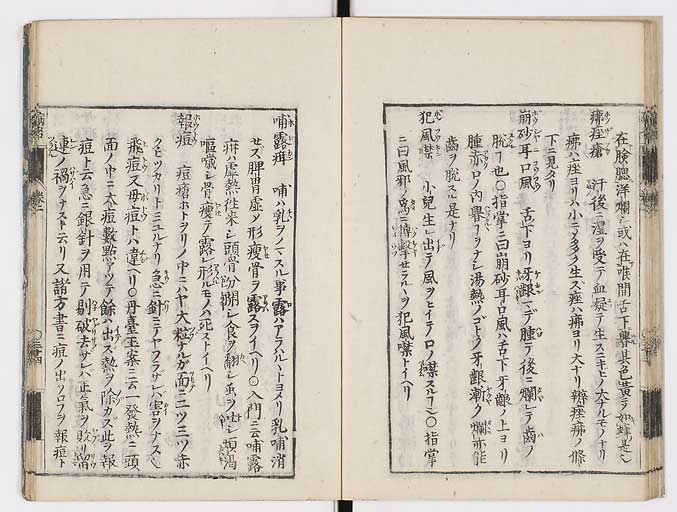 在臉腮洋爛シ或ハ在喉間舌下舉其色黃ヲ如蜂是ヘ
痱痤瘡 汗後ニ湿ヲ受テ血凝テ生スニキモノ大ナルモノナリ
痱ハ痤ヨリハ小ニメ多ク生ズ痤ハ痱ヨリ大ナリ辨痤痱ノ條
下ニ見タリ
崩砂耳口風 舌下ヨリ牙齦マデ腫テ後ニ爛レテ齒ノ
脱ル丁也〇指掌ニ曰崩砂耳口風ハ舌下牙齦ノ上ヨリ
腫赤ロノ內舉ヲナシ湯熱ノゴトク牙齦漸ク爛亦能
齒ヲ脱スル是ナリ
犯風噤 小兒生レ出テ風ヲヒイテ口ノ噤スル丁〇指掌
ニ曰風邪ノ為ニ搏擊セラルヽヲ犯風噤トイヘリ
哺露疳 哺ハ乳ヲノミスル事露ハアラハルヽトヨメリ乳哺消
セズ脾胃虛メ形瘦骨ヲ露スヲイヘリ〇入門ニ云哺露
疳ハ虛熱往来シ頭骨分開シ食ヲ翻シ虫ヲ吐シ煩渴
嘔噦シ骨瘦テ露レ形ルモノハ死ストイヘリ
報痘 痘瘡ホトヲリノ中ニハヤ大粒ナルガ面ニ二ツ三ツ赤
クヒツカリトミユルナリ急ニ針ニテヤフラザレバ害ヲナスヘ
飛痘又母痘トハ違ヘリ〇丹臺玉案ニ云一發熱ニ頭
面ノ中ニ大痘數點アツテ餘ハ出ス熱ヲ除カス此ヲ報
痘ト云急ニ銀針ヲ用テ剔破去ザレバ正氣ヲ敗リ留
連ノ禍ヲナスト云リ又諸方書ニ痘ノ出ソロフヲ報痘ト